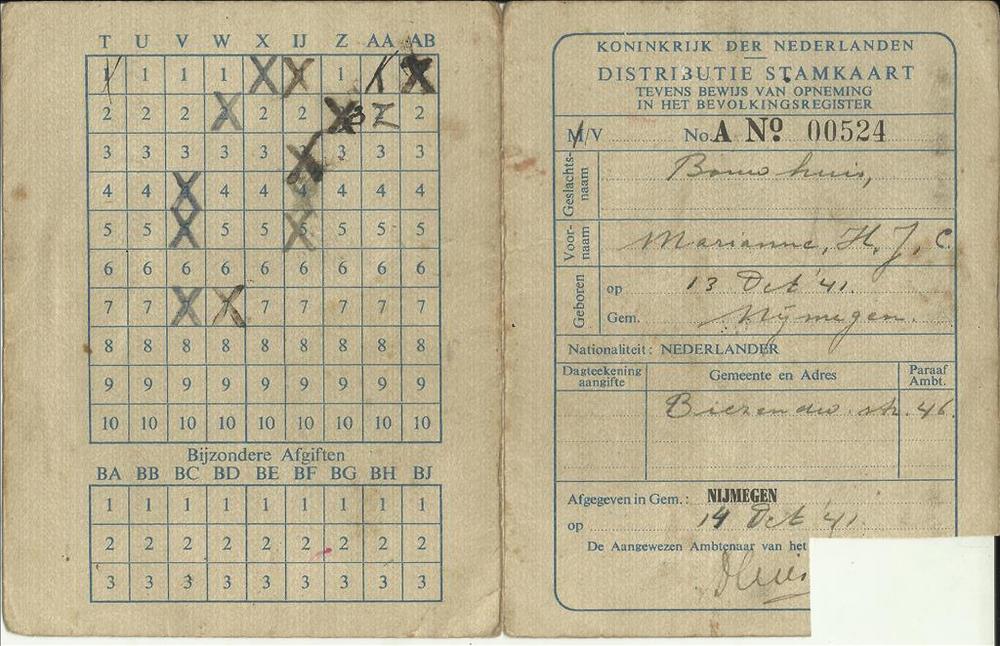 T U V W X IJ Z AA AB
1 1 1 1 X X 1 1 X
2 2 2 X 2 2 X 3 Z 2
3 3 3 3 3 3 3 3 3
4 4 4 4 4 4 4 4 4
5 5 5 5 5 5 5 5 5
6 6 6 6 6 6 6 6 6
7 7 7 7 7 7 7 7 7
8 8 8 8 8 8 8 8 8
9 9 9 9 9 9 9 9 9
10 10 10 10 10 10 10 10 10
Bijzondere Afgiften
BA BB BC BD BE BF BG BH BJ
1 1 1 1 1 1 1 1 1
2 2 2 2 2 2 2 2 2
3 3 3 3 3 3 3 3 3
KONINKRIJK DER NEDERLANDEN
DISTRIBUTIE STAMKAART
TEVENS BEWIJS VAN OPNEMING
IN HET BEVOLKINGSREGISTER
M/V No. A Nº 00524
Geslachts-
naam
Bouwhuis,
Voor-
naam
Marianne, H, J, C.
Geboren
op 13 Oct '41.
Gem. Nijmegen.
Nationaliteit: NEDERLANDER
Dagteekening
aangifte
Gemeente en Adres
Paraaf
Ambt.
str. 46.
Afgegeven in Gem.: NIJMEGEN
op 14 Oct '41.
De Aangewezen Ambtenaar van het